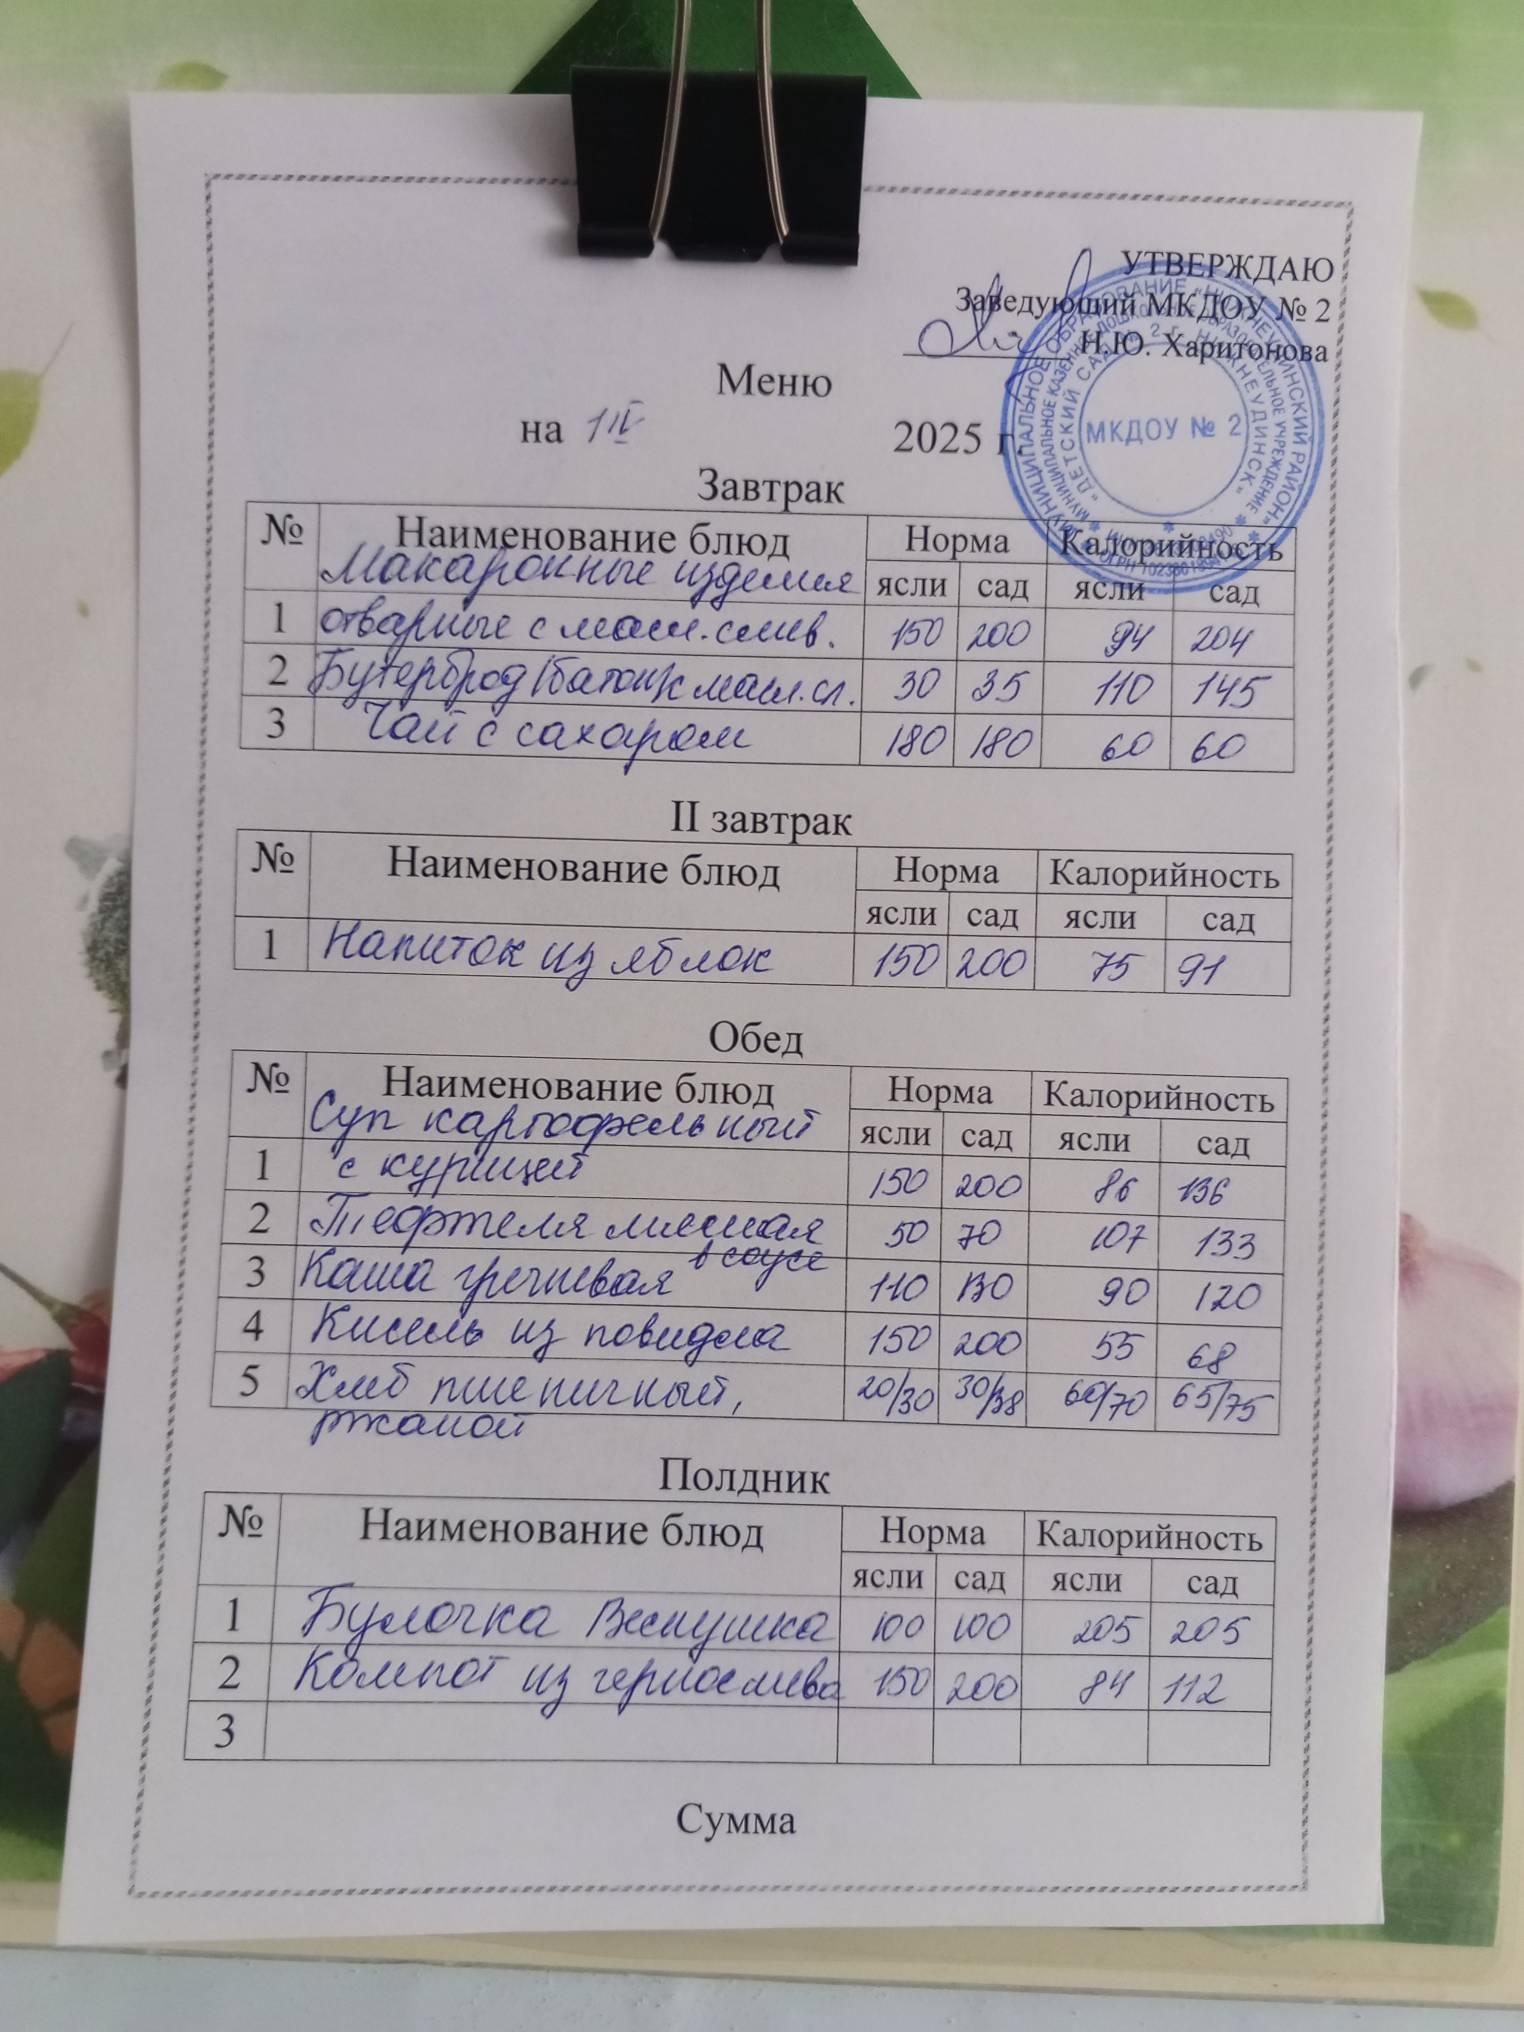 УТВЕРЖДАЮ
Заведующий МКДОУ № 2
Н.Ю. Харитонова
МУНИЦИПАЛЬНОЕ ОБРАЗОВАНИЕ «НИЖНЕУДИНСКИЙ РАЙОН»
МУНИЦИПАЛЬНОЕ КАЗЕННОЕ ДОШКОЛЬНОЕ ОБРАЗОВАТЕЛЬНОЕ УЧРЕЖДЕНИЕ
«ДЕТСКИЙ САД № 2 г. НИЖНЕУДИНСК»
МКДОУ № 2
Меню
на 1 IV 2025 г.
Завтрак
№ Наименование блюд Норма Калорийность
ясли сад ясли сад
Макаронные изделия
1 отварные с масл. слив. 150 200 94 204
2 Бутерброд (батон) с масл. сл. 30 35 110 145
3 Чай с сахаром 180 180 60 60
II завтрак
№ Наименование блюд Норма Калорийность
ясли сад ясли сад
1 Напиток из яблок 150 200 75 91
Обед
№ Наименование блюд Норма Калорийность
ясли сад ясли сад
Суп картофельный
1 с курицей 150 200 86 136
2 Тефтеля мясная 50 70 107 133
в соусе
3 Каша гречневая 110 130 90 120
4 Кисель из повидла 150 200 55 68
5 Хлеб пшеничный, 20/30 30/38 60/70 65/75
ржаной
Полдник
№ Наименование блюд Норма Калорийность
ясли сад ясли сад
1 Булочка Веснушка 100 100 205 205
2 Компот из чернослива 150 200 84 112
3
Сумма